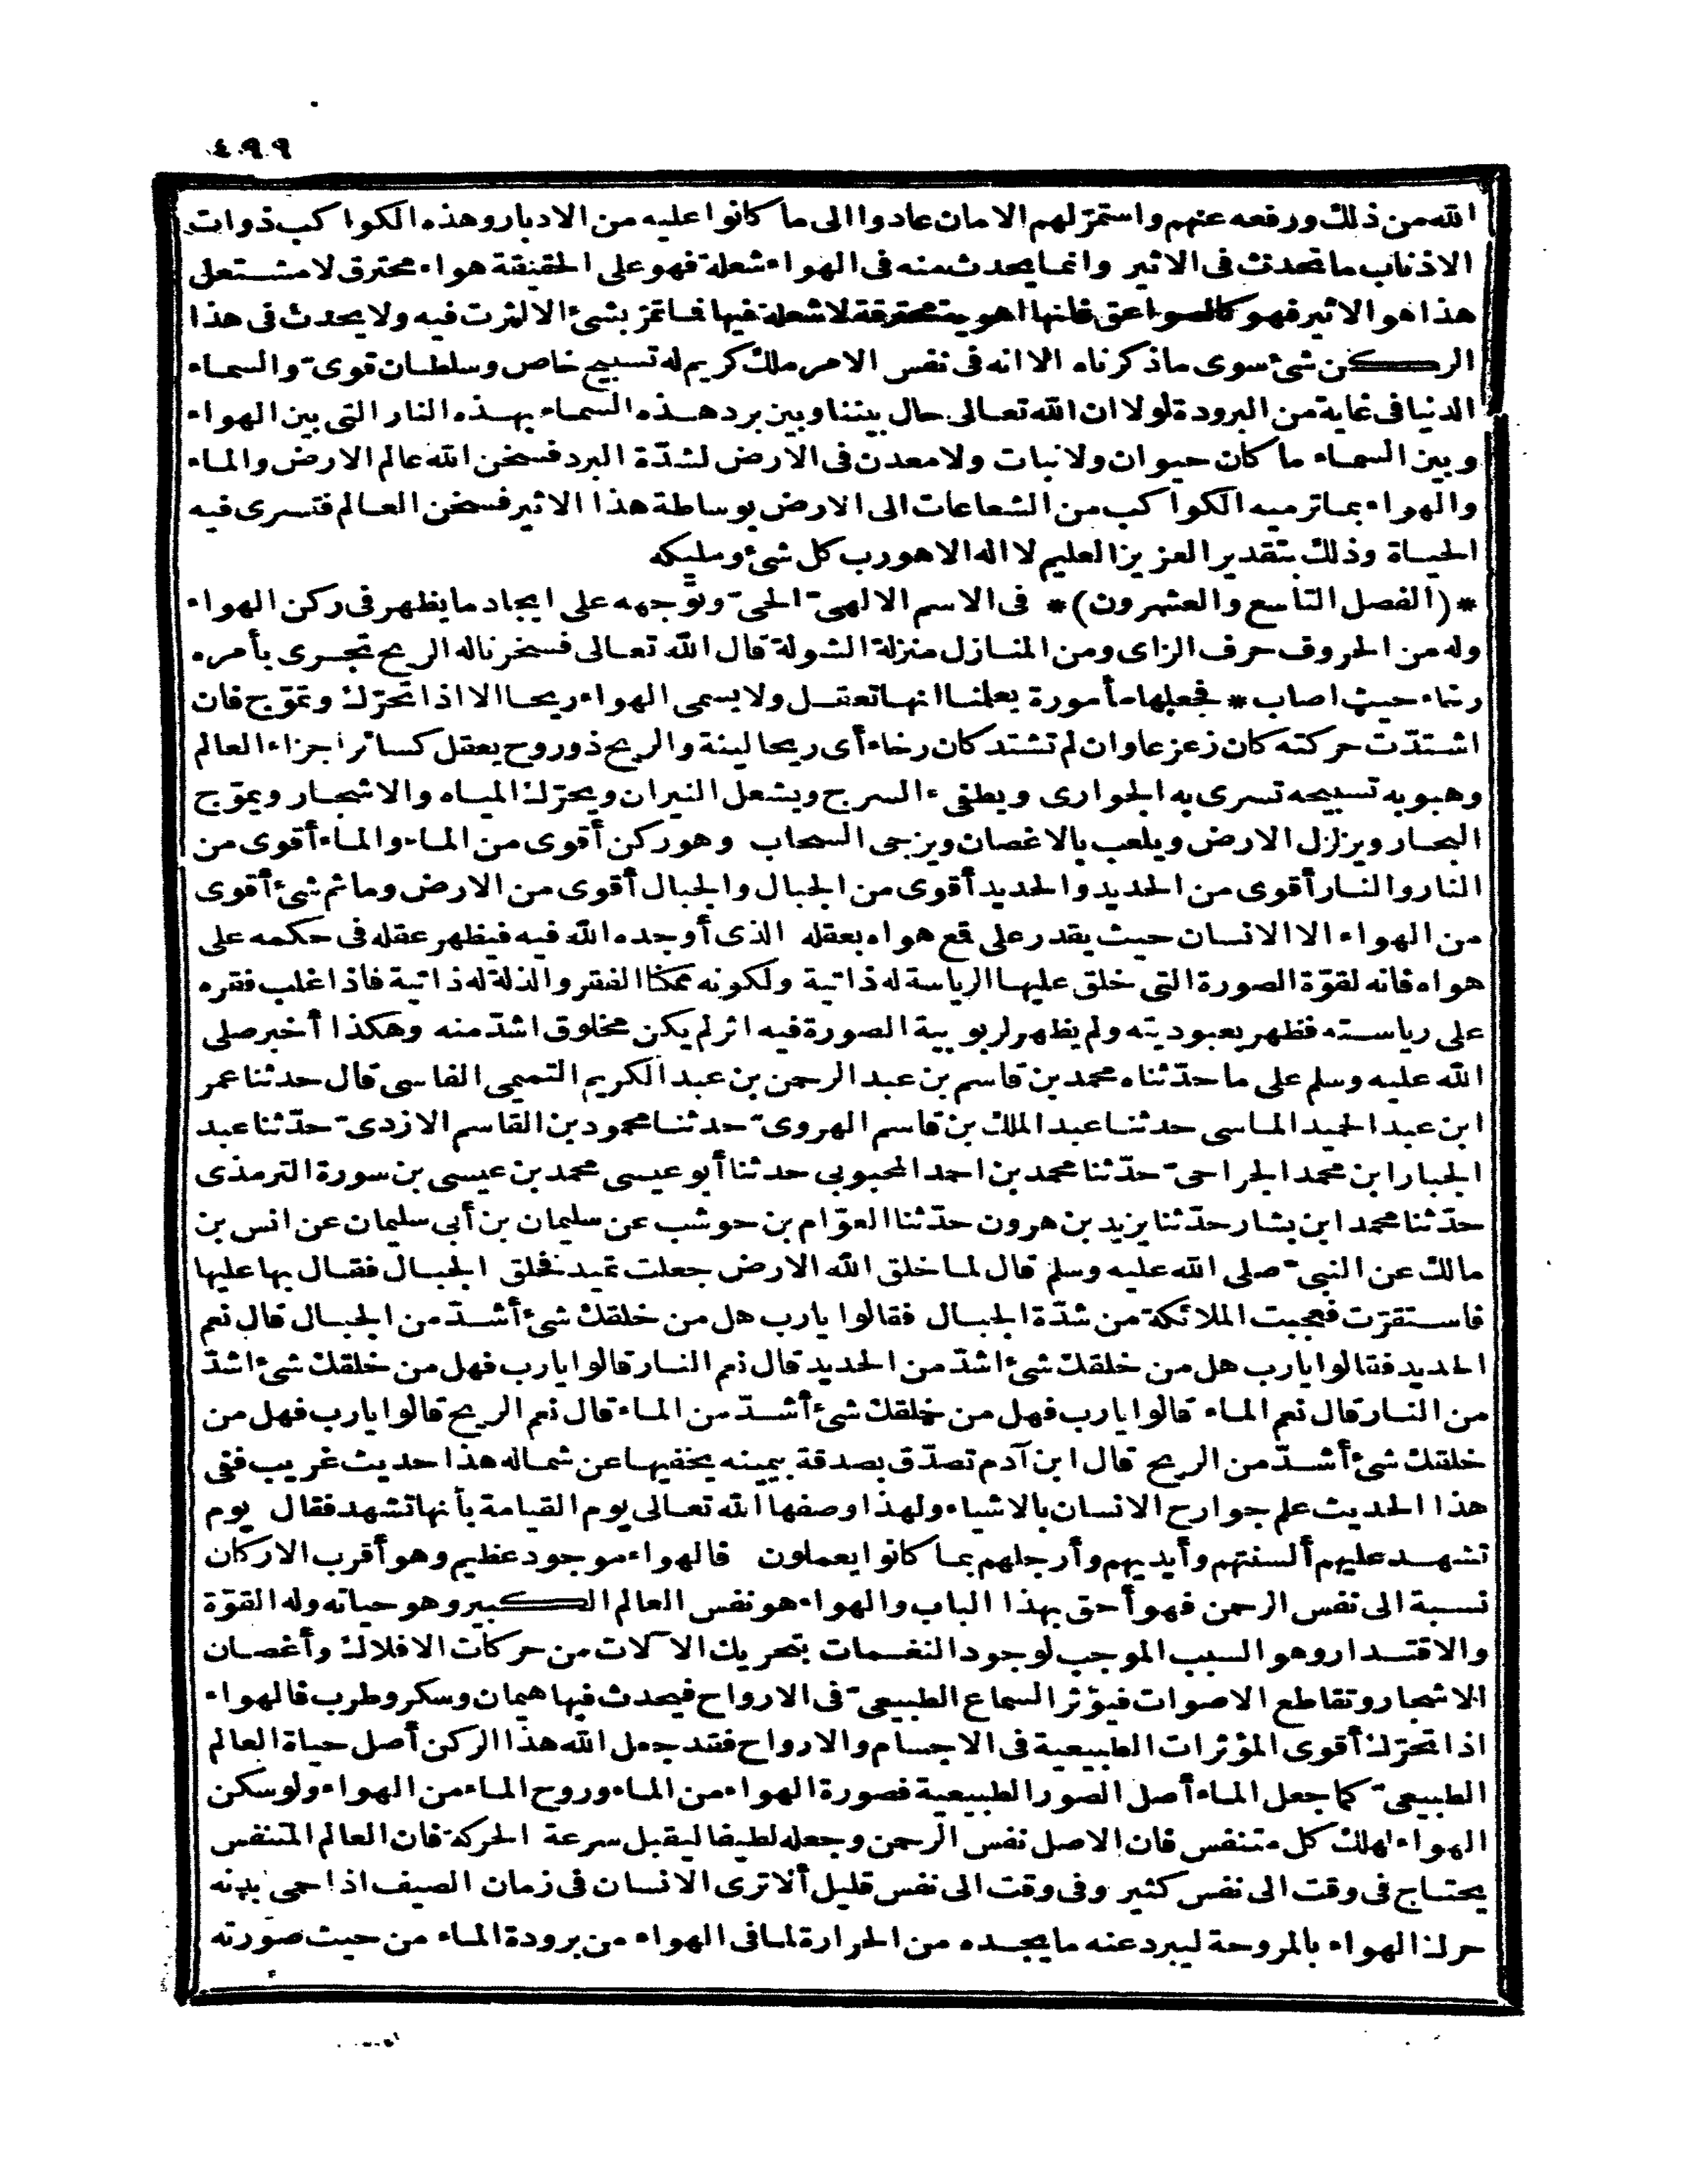 ٤٩٩
الله من ذلك ورفعه عنهم واستمرّ لهم الامان عادوا الى ما كانوا عليه من الادبار وهذه الكواكب ذوات
الاذناب ما تحدث فى الاثير وانما يحدث منه فى الهواء شعلة فهو على الحقيقة هواء محترق لا مشتعل
هذا هو الاثير فهو كالصواعق فانها اهوية محترقة لا شعلة فيها فما تمرّ بشئ الا اثرت فيه ولا يحدث فى هذا
الركن شئ سوى ما ذكرناه الا انه فى نفس الامر ملك كريم له تسبيح خاص وسلطان قوىّ والسماء
الدنيا فى غاية من البرودة لولا ان الله تعالى حال بيننا وبين برد هذه السماء بهذه النار التى بين الهواء
وبين السماء ما كان حيوان ولا نبات ولا معدن فى الارض لشدّة البرد فسخن الله عالم الارض والماء
والهواء بما ترميه الكواكب من الشعاعات الى الارض بوساطة هذا الاثير فسخن العالم فتسرى فيه
الحياة وذلك بتقدير العزيز العليم لا اله الا هو رب كل شئ ومليكه
* (الفصل التاسع والعشرون)* فى الاسم الالهىّ الحىّ وتوّجهه على ايجاد ما يظهر فى ركن الهواء
وله من الحروف حرف الزاى ومن المنازل منزلة الشولة قال الله تعالى فسخرنا له الريح تجرى بأمره
رخاء حيث اصاب * فجعلها مأمورة يعلمنا انها تعقل ولا يسمى الهواء ريحا الا اذا تحرّك وتموّج فان
اشتدّت حركته كان زعزعا وان لم تشتد كان رخاء أى ريحا لينة والريح ذو روح يعقل كسائر اجزاء العالم
وهبوبه تسبيحه تسرى به الجوارى ويطفىء السرج ويشعل النيران ويحرّك المياه والاشجار ويموّج
البحار ويزلزل الارض ويلعب بالاغصان ويزجى السحاب وهو ركن أقوى من الماء والماء أقوى من
النار والنار أقوى من الحديد والحديد أقوى من الجبال والجبال أقوى من الارض وما ثم شئ أقوى
من الهواء الا الانسان حيث يقدر على قمع هواه بعقله الذى أوجده الله فيه فيظهر عقله فى حكمه على
هواه فانه لقوّة الصورة التى خلق عليها الرياسة له ذاتية ولكونه ممكنا الفقر والذلة له ذاتية فاذا غلب فقره
على رياسته فظهر بعبوديته ولم يظهر لربوبية الصورة فيه اثر لم يكن مخلوق اشدّ منه وهكذا أخبر صلى
الله عليه وسلم على ما حدّثناه محمد بن قاسم بن عبد الرحمن بن عبد الكريم التميمى الفاسى قال حدثنا عمر
ابن عبد الجيد الماسى حدثنا عبد الملك بن قاسم الهروىّ حدثنا محمود بن القاسم الازدىّ حدّثنا عبد
الجبار ابن محمد الجراحىّ حدّثنا محمد بن احمد المحبوبى حدثنا أبو عيسى محمد بن عيسى بن سورة الترمذى
حدّثنا محمد ابن بشار حدّثنا يزيد بن هرون حدّثنا العوّام بن حوشب عن سليمان بن أبى سليمان عن انس بن
مالك عن النبىّ صلى الله عليه وسلم قال لما خلق الله الارض جعلت تميد فخلق الجبال فقال بها عليها
فاستقرّت فعجبت الملائكة من شدّة الجبال فقالوا يارب هل من خلقك شئ أشدّ من الجبال قال نعم
الحديد فقالوا يارب هل من خلقك شئ اشدّ من الحديد قال نعم النار قالوا يارب فهل من خلقك شئ اشدّ
من النار قال نعم الماء قالوا يارب فهل من خلقك شئ أشدّ من الماء قال نعم الريح قالوا يارب فهل من
خلقك شئ أشدّ من الريح قال ابن آدم تصدّق بصدقة بيمينه يخفيها عن شماله هذا حديث غريب ففى
هذا الحديث علم جوارح الانسان بالاشياء ولهذا وصفها الله تعالى يوم القيامة بأنها تشهد فقال يوم
تشهد عليهم ألسنتهم وأيديهم وأرجلهم بما كانوا يعملون فالهواء موجود عظيم وهو أقرب الاركان
نسبة الى نفس الرحمن فهو أحق بهذا الباب والهواء هو نفس العالم الكبير وهو حياته وله القوّة
والاقتدار وهو السبب الموجب لوجود النغمات بتحريك الآلات من حركات الافلاك وأغصان
الاشجار وتقاطع الاصوات فيؤثر السماع الطبيعىّ فى الارواح فيحدث فيها هيمان وسكر وطرب فالهواء
اذا تحرّك أقوى المؤثرات الطبيعية فى الاجسام والارواح فقد جعل الله هذا الركن أصل حياة العالم
الطبيعىّ كما جعل الماء أصل الصور الطبيعية فصورة الهواء من الماء وروح الماء من الهواء ولو سكن
الهواء لهلك كل متنفس فان الاصل نفس الرحمن وجعله لطيفا ليقبل سرعة الحركة فان العالم المتنفس
يحتاج فى وقت الى نفس كثير وفى وقت الى نفس قليل ألا ترى الانسان فى زمان الصيف اذا حمى بدنه
حرك الهواء بالمروحة ليبرد عنه ما يجده من الحرارة لما فى الهواء من برودة الماء من حيث صورته